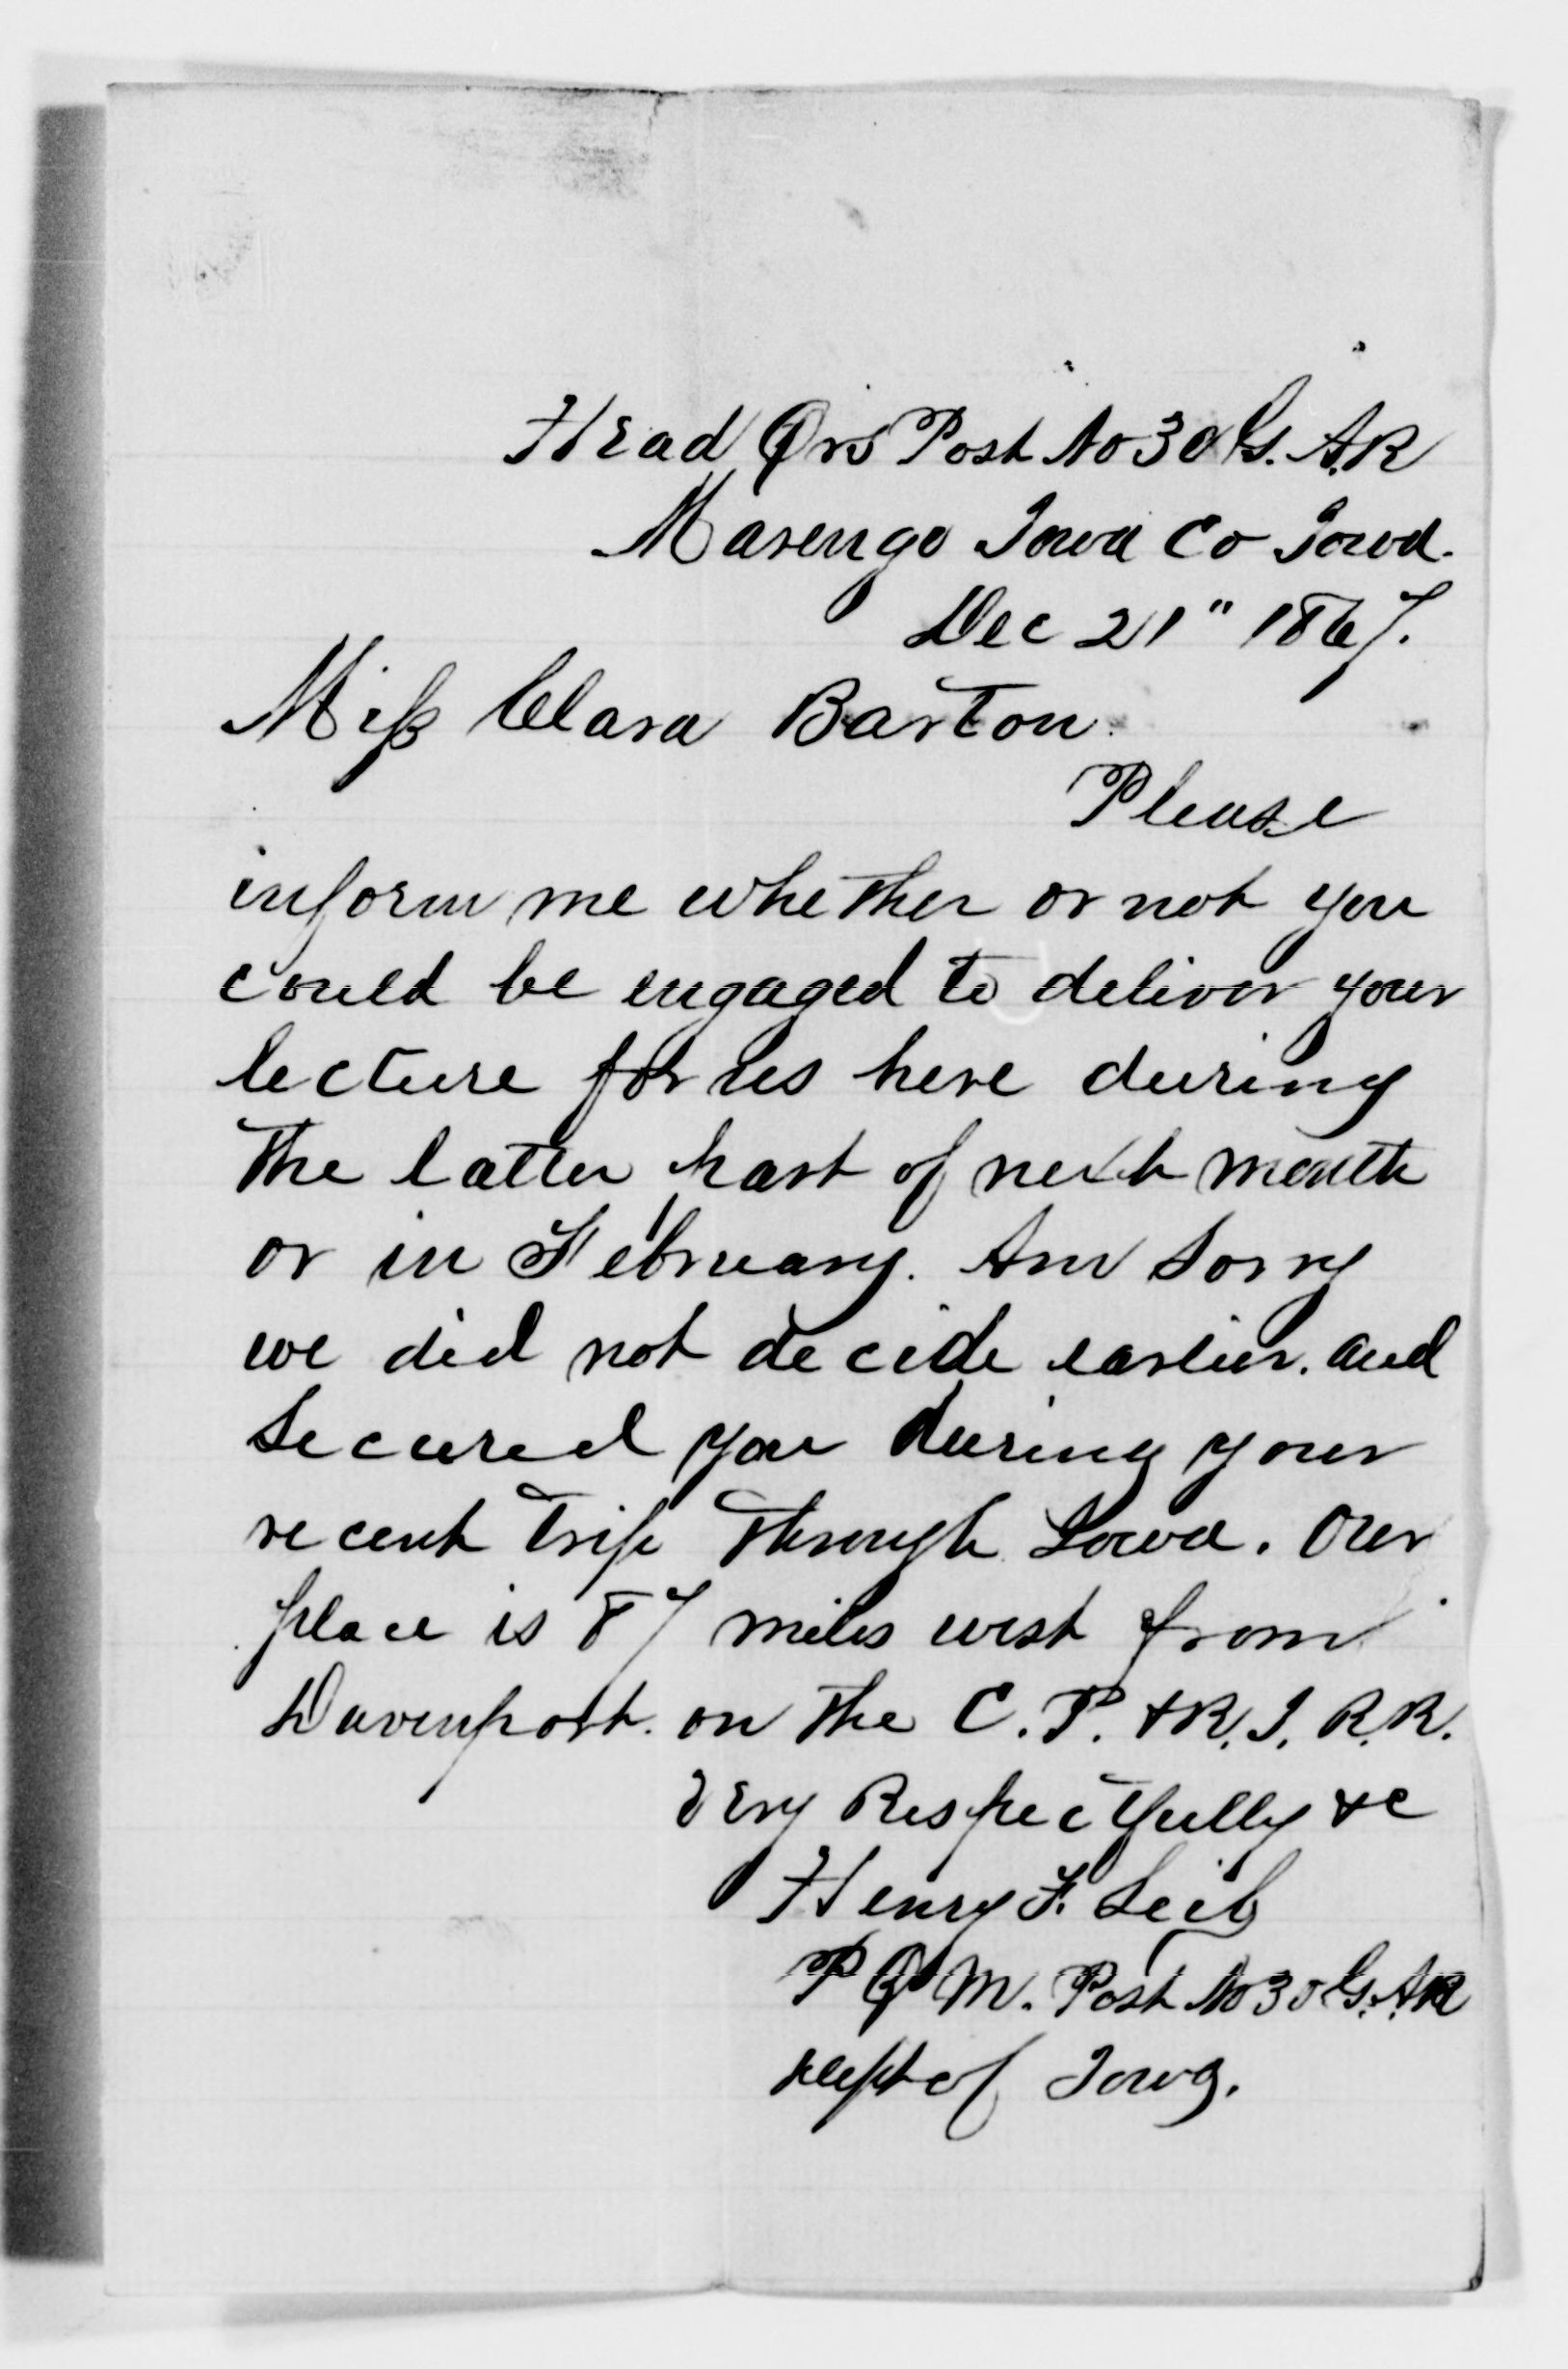 Head Qrs Post No 30 G. A. R
Marengo Iowa Co Iowa.
Dec 21" 1867.
Miss Clara Barton.
Please
inform me whether or not you
could be engaged to deliver your
lecture for us here during
the latter part of next month
or in February. Am Sorry
we did not decide earlier. and
Secured you during your
recent trip through Iowa. Our
place is 87 miles west from
Davenport. on the C. P. & R. I. R. R.
Very Respectfully &c
Henry F. Leib
P Q M. Post No 30 G. A. R
Dept of Iowa.